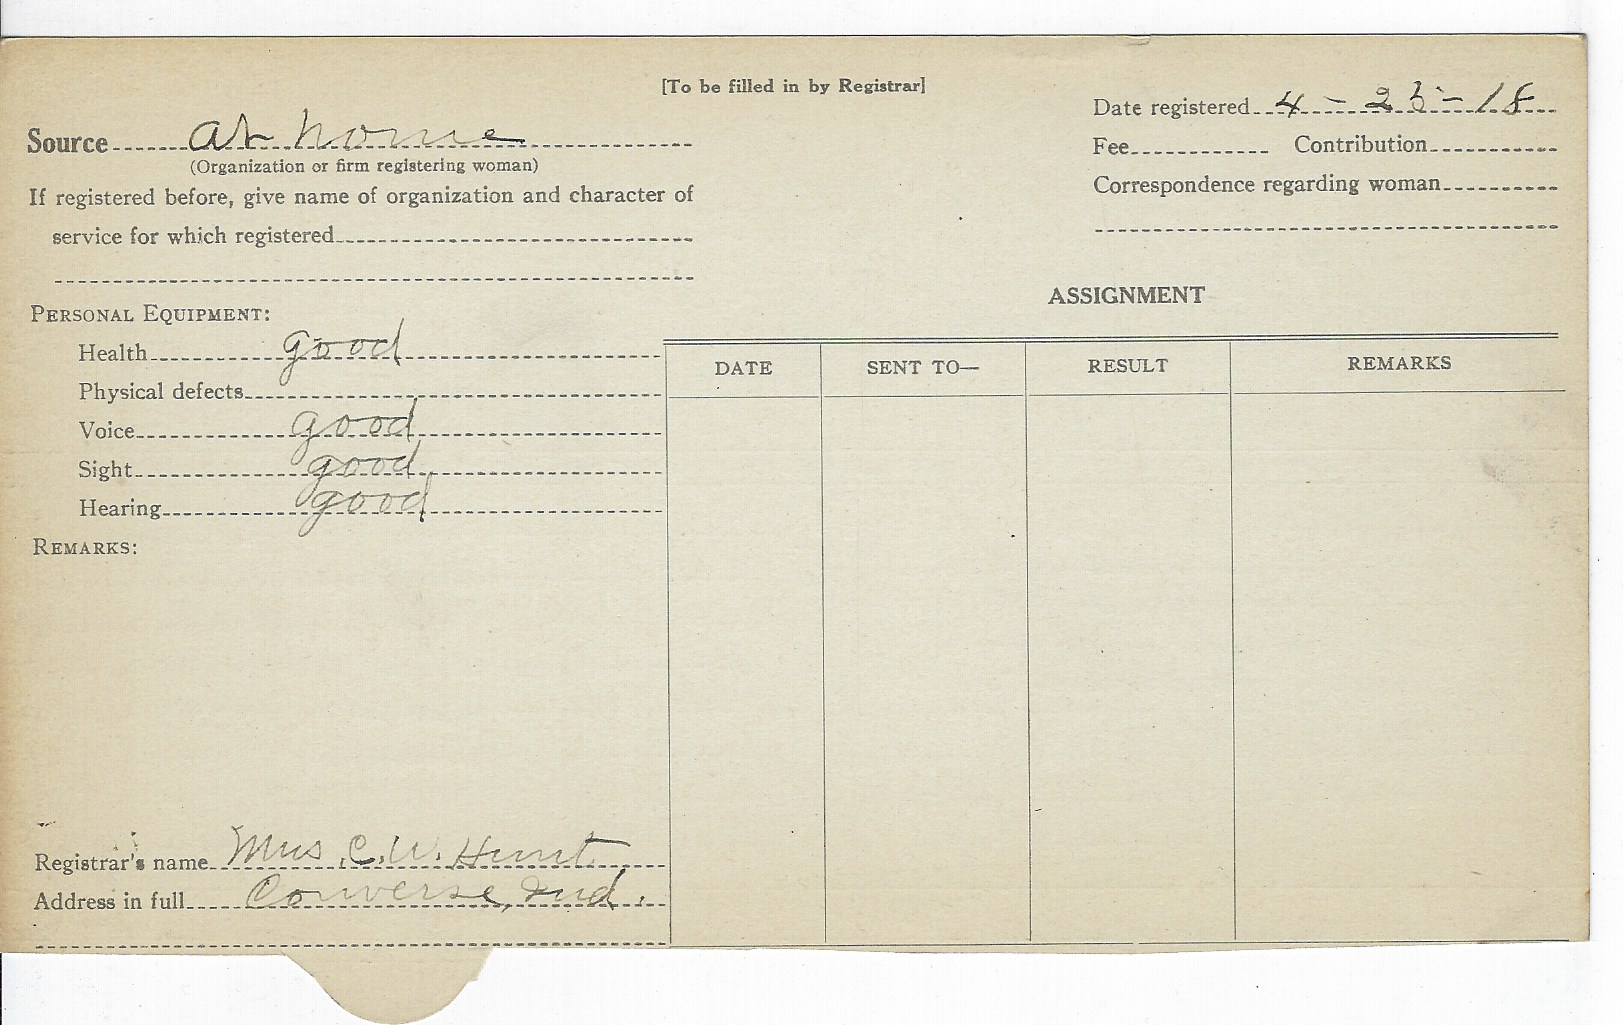 [To be filled in by Registrar]
Date registered 4 - 25 - 18
Source at home
(Organization or firm registering woman)
Fee Contribution
If registered before, give name of organization and character of
service for which registered
Correspondence regarding woman
ASSIGNMENT
PERSONAL EQUIPMENT:
Health good
Physical defects
Voice good
Sight good
Hearing good
DATE SENT TO— RESULT REMARKS
REMARKS:
Registrar's name Mrs. C. W. Hunt.
Address in full Converse, Ind.